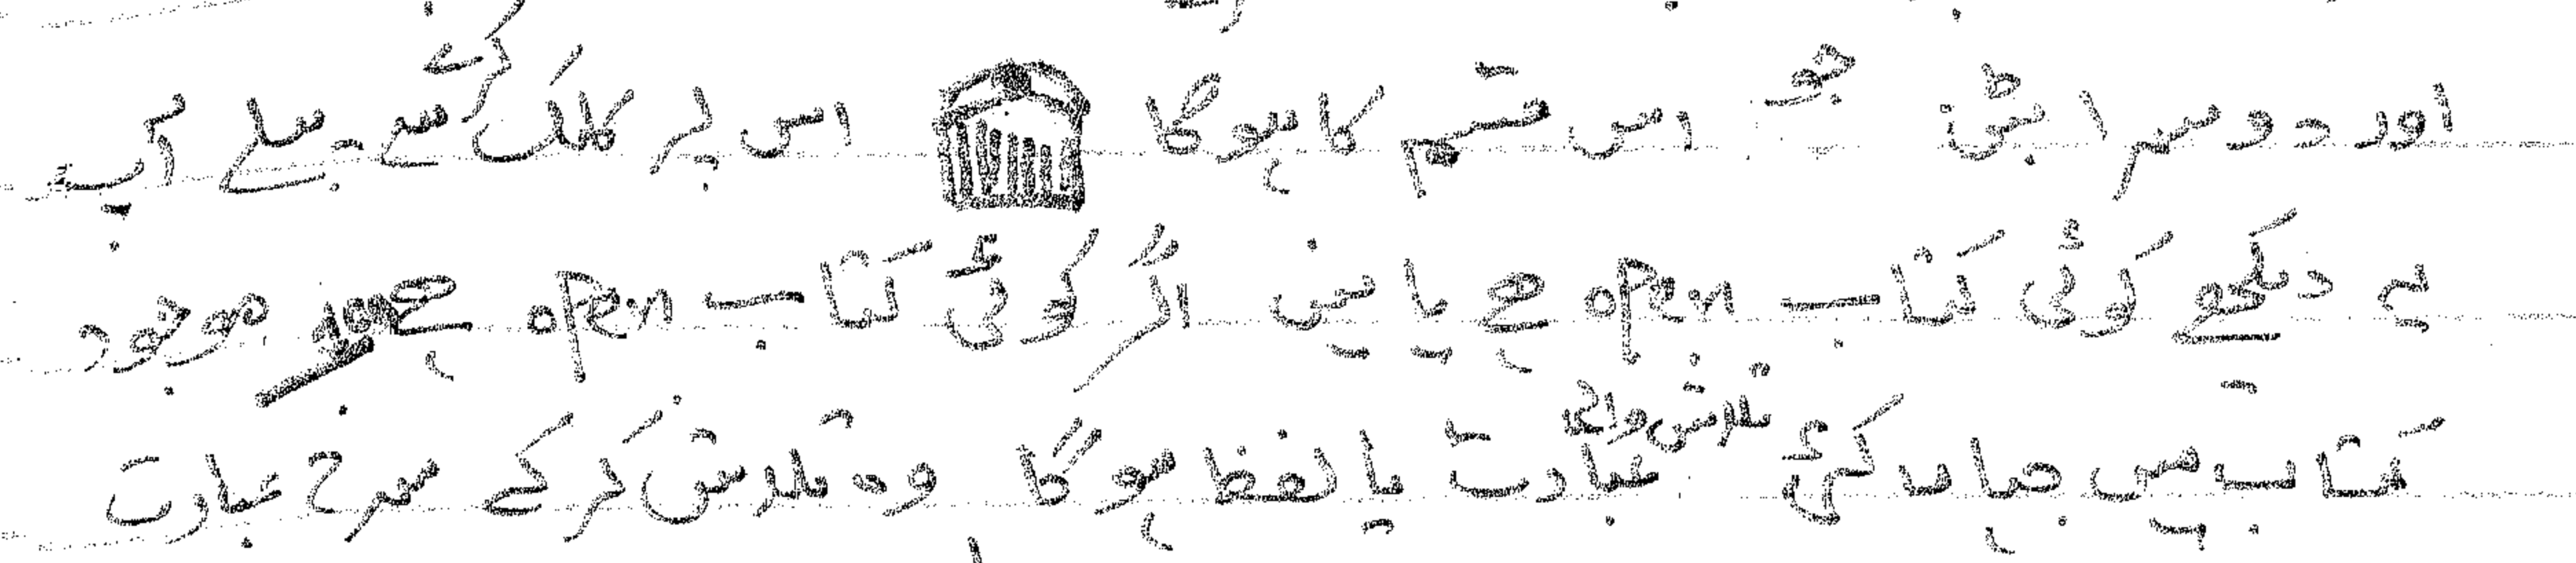 اور دوسرا بٹن جو اس قسم کا ہوگا اس پر کلک کرنے سے پہلے آپ
یہ دیکھے کوئی کتاب open ہے یا نہیں اگر کوئی کتاب open ہے موجود
کتاب میں جہاں کہی تلاش والی عبارت یا لفظ ہوگا وہ تلاش کر کے سرخ عبارت